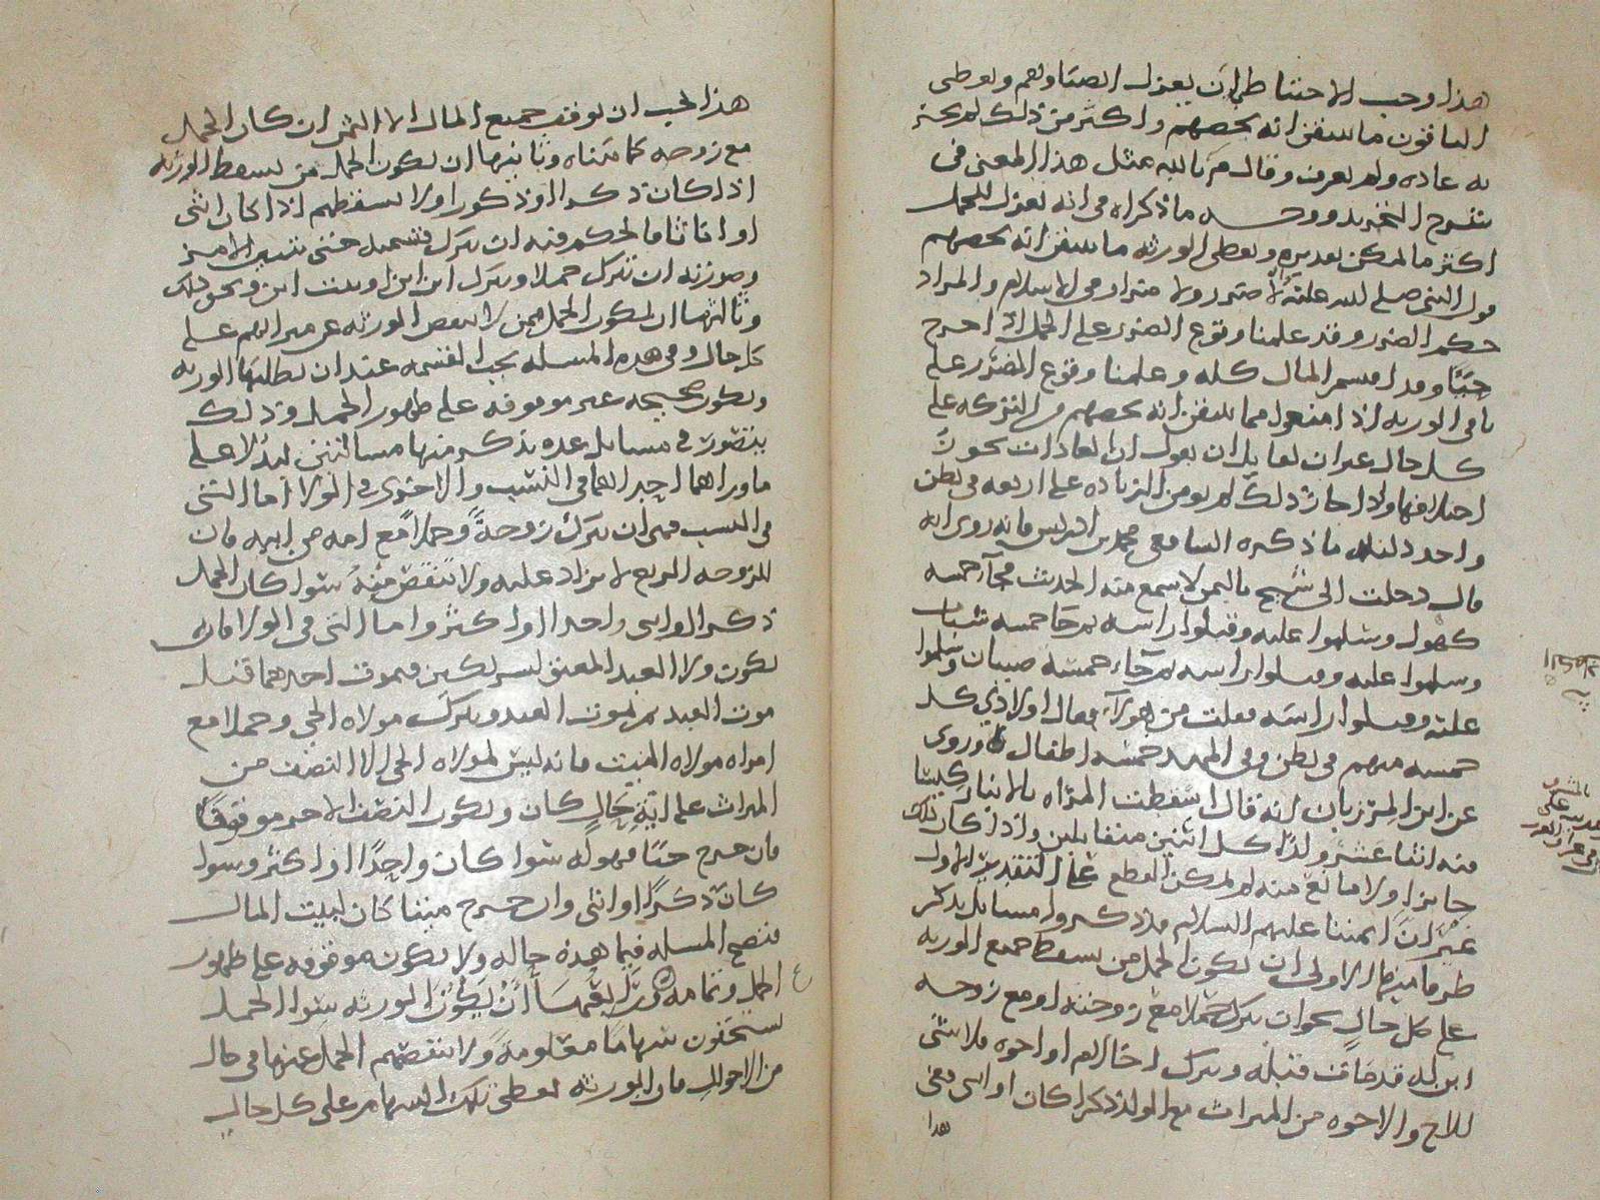 هذا وجب الاحتياط بان يعزل انصباوهم ويعطى
الباقون ما يتيقن انه يحصهم واكثر من ذلك لم تجر
به عاده ولم يعرف وقال م بالله عليلم مثل هذا المعنى في
شرح التجريد ووجه ما ذكراه من انه يعزل للحمل
اكثر ما يمكن تقديره ويعطى الورثه ما يتيقن انه يحصهم
قول النبى صلى الله عليه لا ضرر ولا ضرار في الاسلام والمراد
حكم الضرر وقد علمنا وقوع الضرر على الحمل اذا خرج
حيًا وقد قسم المال كله وعلمنا وقوع الضرر على
باقي الورثه اذا منعوا مما يتيقن انه يحصهم من التركه على
كل حال غير ان لقايل ان يقول ان العادات يجوز
اختلافها واذا جاز ذلك لم يومن الزياده على اربعه في بطن
واحد دليله ما ذكره الشافعي محمد بن ادريس فانه روى انه
قال دخلت الى شيخ باليمن لاسمع منه الحديث فجآ خمسه
كهول وسلموا عليه وقبلوا راسه ثم جا خمسه شباب
وسلموا عليه وقبلوا راسه ثم جآء خمسه صبيان وسلموا
عليه وقبلوا راسه فقلت من هولآء فقال اولادي كل
خمسه منهم في بطن وفي المهد خمسه اطفال وروى
عن ابن المرزبان انه قال اسقطت المراه بالانبار كيسا
فيه اثنا عشر ولدًا كل اثنين متقابلين واذا كان ذلك
جايزا ولا مانع منه لم يمكن القطع على التقدير الاول
غير ان ايمتنا عليهم السلام قد ذكروا مسايل نذكر
طرفا منها الاولى ان يكون الحمل من يسقط جميع الورثه
على كل حالٍ نحو ان يترك حملا مع زوجته او مع زوجه
ابن له قد مات قبله ويترك اخا لام او اخوه فلا شى
للاخ والاخوه من الميراث مع الولد ذكرا كان او انثى فعلى
هذا
هذا يجب ان يوقف جميع المال الا الثمن ان كان الحمل
مع زوجه كما بيناه وثانيها ان يكون الحمل ممن يسقط الورثه
اذا كان ذكرا او ذكورا ولا يسقطهم اذا كان انثى
او اناثا فالحكم فيه ان يترك قسمته حتى يتبين الامر
وصورته ان يترك حملا ويترك ابن ابن او بنت ابن ونحو ذلك
وثالثها ان يكون الحمل ممن لا ينقص الورثه عن ميراثهم على
كل حال وفي هذه المسله يجب القسمه عند ان يطلبها الورثه
وتكون صحيحه غير موقوفه على ظهور الحمل وذلك
يتصور في مسايل عده نذكر منها مسالتين ليدلا على
ما وراهما احداهما في النسب والاخرى في الولا اما التى
في النسب فهى ان يترك زوجةً وحملاً مع امه من ابيه فان
للزوجه الربع لا يزاد عليه ولا ينقص منه سوا كان الحمل
ذكرا او انثى واحدا او اكثر واما التى في الولا فان
يكون ولا العبد المعتق لشريكين فيموت احدهما قبل
موت العبد ثم يموت العبد ويترك مولاه الحى وحملا مع
امراه مولاه الميت فانه ليس لمولاه الحى الا النصف من
الميراث على ايةِ حالٍ كان ويكون النصف الاخر موقوفًا
فان خرج حيًا فهو له سوا كان واحدًا او اكثر وسوا
كان ذكرًا او انثى وان خرج ميتا كان لبيت المال
فتصح المسله فيما هذه حاله ولا تكون موقوفه على ظهور
الحمل ورابعها أَنْ يكون الورثه سوا الحمل
يستحقون سهامًا معلومةً ولا ينقصهم الحمل عنها في حال
من الاحوال فان الورثه يعطى تلك السهام على كل حال